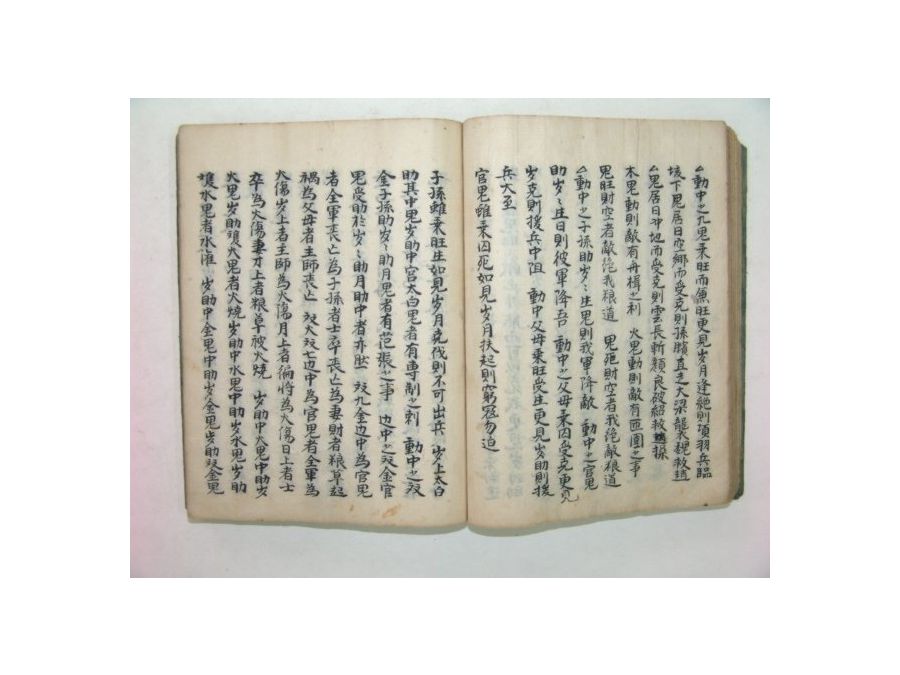 動中之九鬼乘旺而兼旺更見岁月逢絶則項羽兵臨
垓下鬼居日空鄕而受克則孫臏直走大梁龍衣魏救趙
鬼居日冲地而受克則雲長斬顔良破紹救操
木鬼動則敵有舟楫之利 火鬼動則敵有匝圍之事
鬼旺財空者敵絶我粮道 鬼財空者我絶敵粮道
動中之子孫助岁〻生鬼則我軍降敵 動中之官鬼
助岁〻生日則彼軍降吾 動中之父母乘囚受克更見
岁克則援兵中阻 動中父母乘旺受生更見岁助則援
兵大至
官鬼雖乘囚死如見岁月扶起則窮寇勿追
子孫雖乘旺生如見岁月克伐則不可出兵 岁上太白
助其中鬼岁助中宮太白鬼者有專制之剌 動中之双
金子孫助岁〻助月鬼者有范張之事 边中之双金官
鬼受助於岁〻助月助中者亦肰 双九金边中為官鬼
者全軍丧亡為子孫者士卒丧亡為妻財者粮草起
禍為父母者主師丧亡 双火双七边中為官鬼者全軍為
火傷岁上者主師為火傷月上者偏將為火傷日上者士
卒為火傷妻才上者粮草被火燒 岁助中火鬼中助岁
火鬼岁助頭火鬼者火燒岁助中水鬼中助岁水鬼岁助
水鬼者水淮 岁助中金鬼中助岁金鬼岁助双金鬼